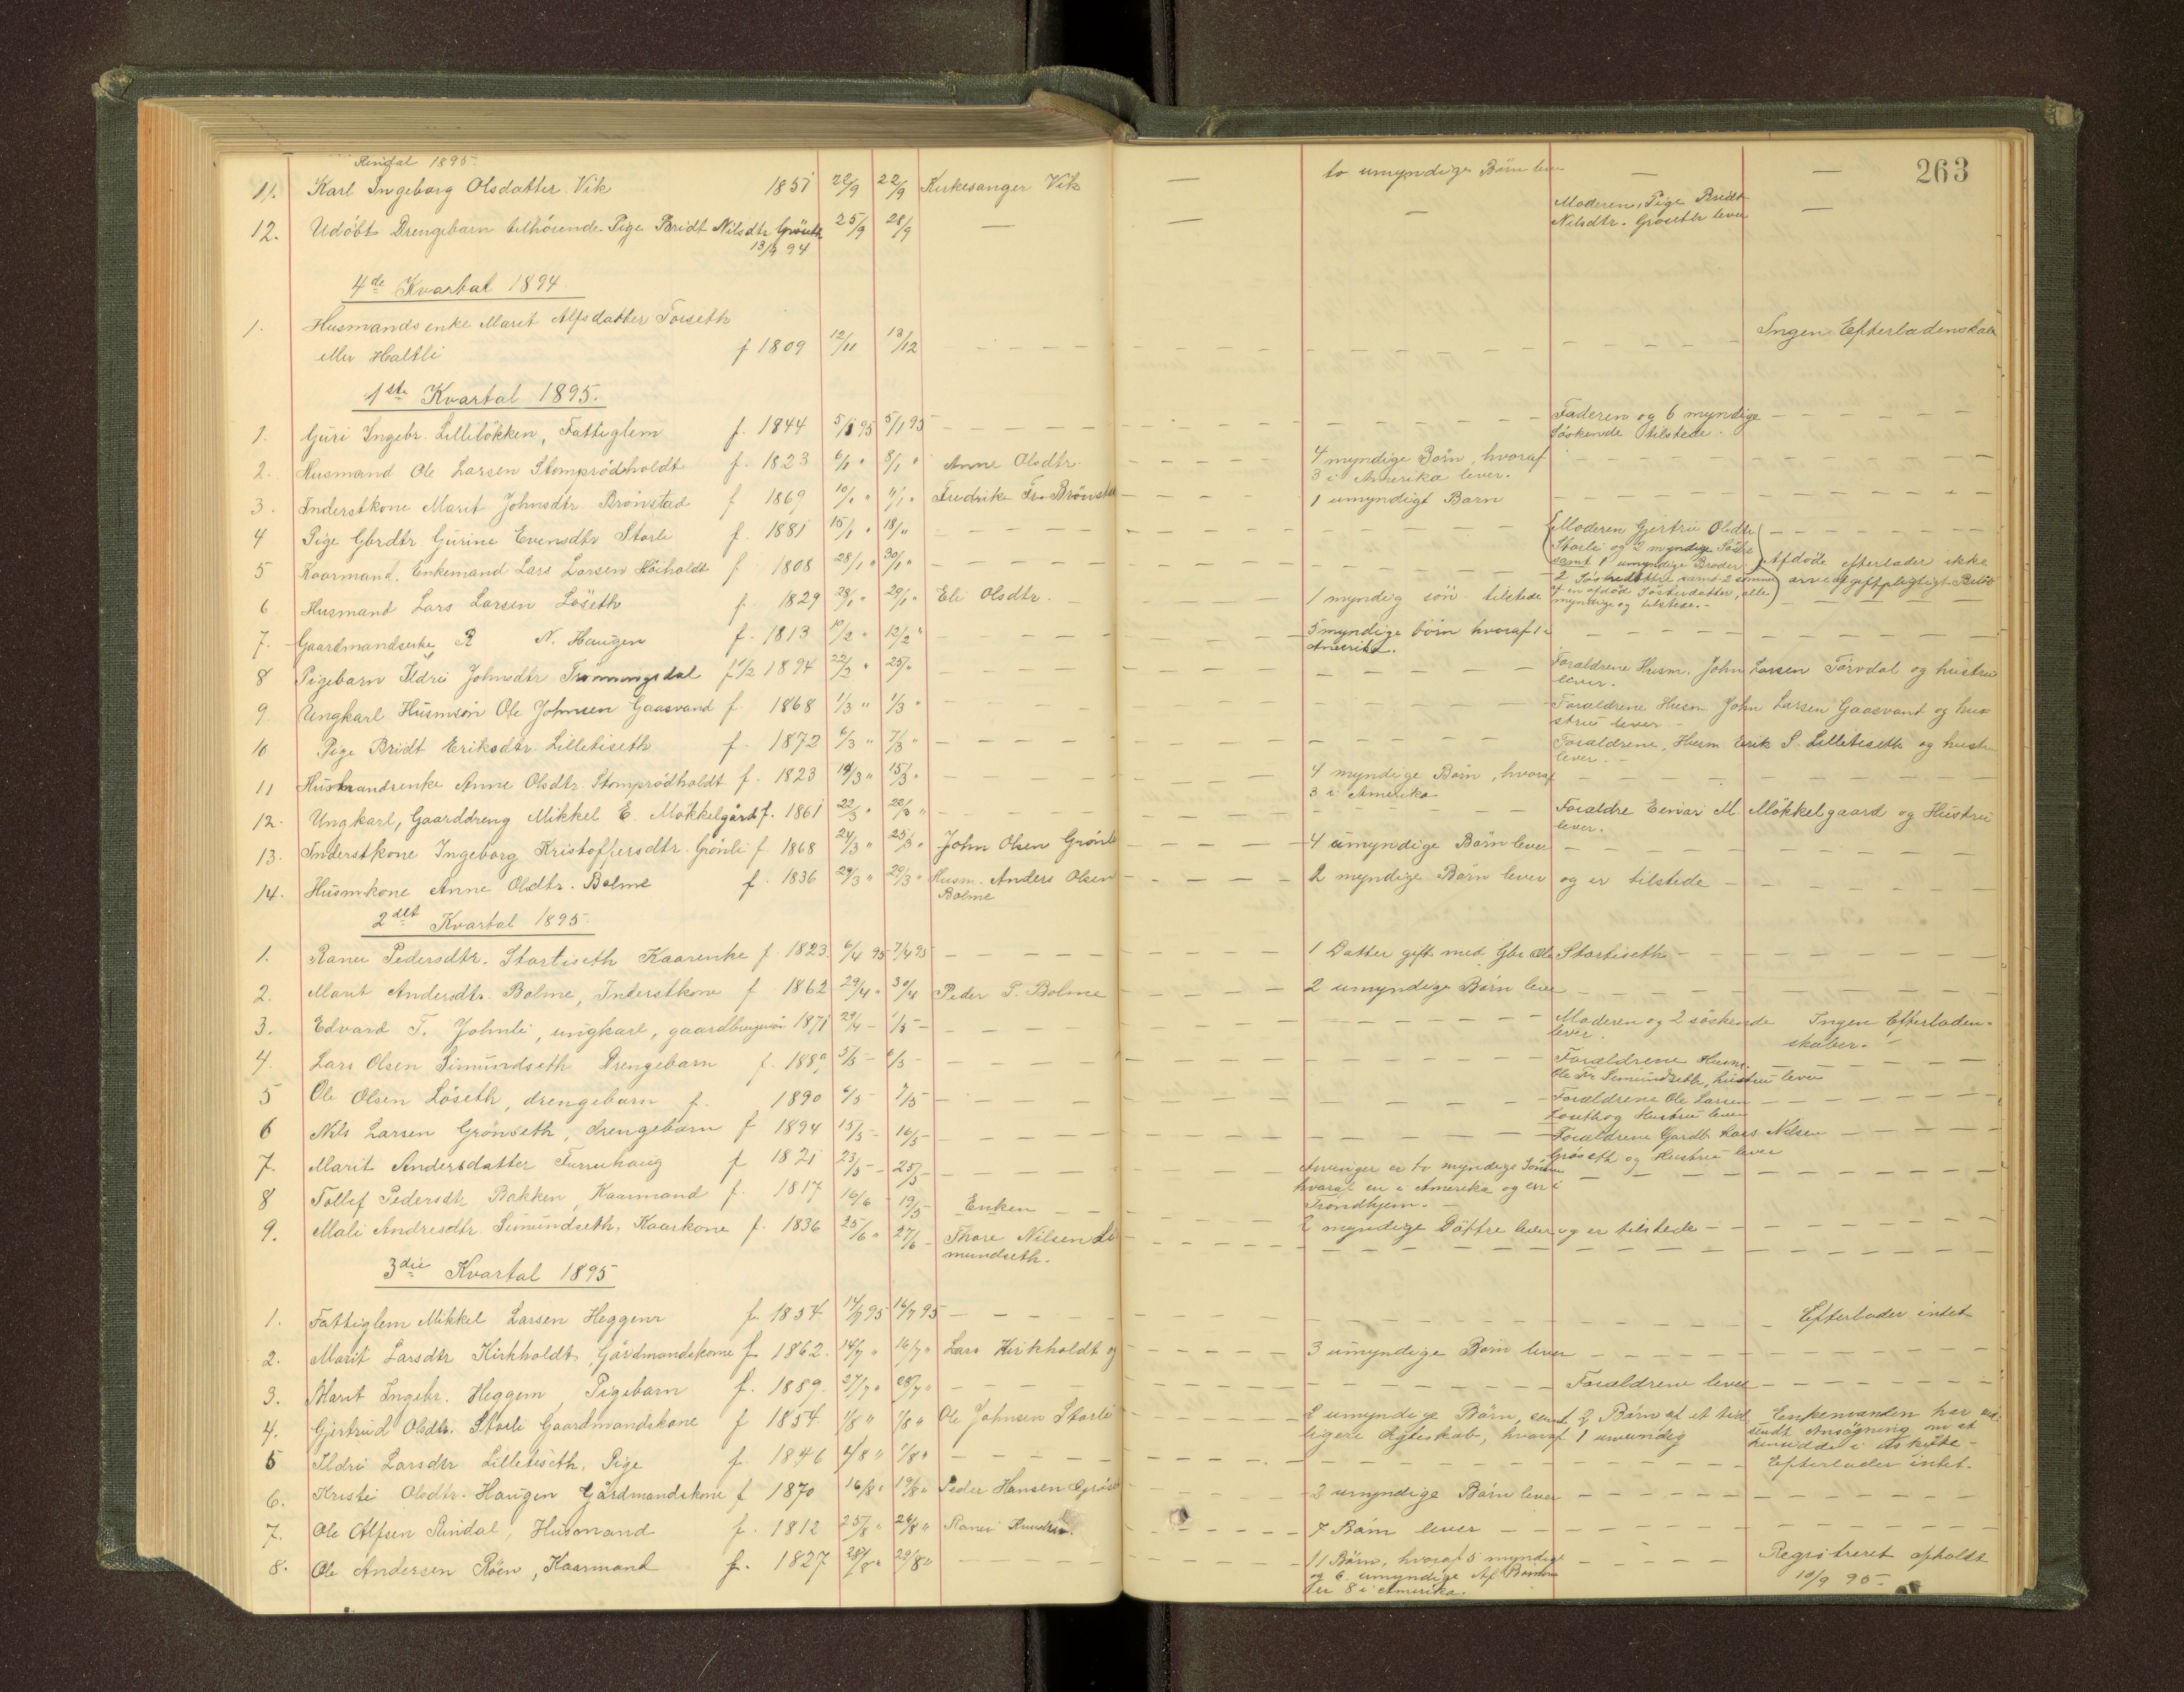 Rindal 1895.
263
11. Karl Ingeborg Olsdatter Vik 1851 22/9 22/9 Kirkesanger Vik — to umyndige Börn lever — —
12. Udöbt Drengebarn tilhörende Pige Bridt Nilsdtr Gröseth 25/9 28/9 — — — Moderen, Pige Bridt
13/9 94 Nilsdtr. Gröseth lever —
4de Kvartal 1894
1. Husmandsenke Marit Alfsdatter Torseth
eller Haltli f 1809 12/11 13/12 Ingen Efterladenskab
1ste Kvartal 1895.
1. Guri Ingebr. Lillelökken, Fattiglem f. 1844 5/1 95 5/1 95 Faderen og 6 myndige
Söskende tilstede.
2. Husmand Ole Larsen Stomprödholdt f. 1823 6/1 " 8/1 " Anne Olsdtr. 4 myndige Börn, hvoraf
3 i Amerika lever.
3. Inderstkone Marit Johnsdtr Brönstad f 1869 10/1 " 11/1 " Fredrik Fr. Brönstad 1 umyndigt Barn
4 Pige Gbrdtr Gurine Evensdtr Storli f. 1881 15/1 " 18/1 " Moderen Gjertru Olsdtr
Storli og 2 myndige Söstre
samt 1 umyndige Broder
5 Kaarmand, Enkemand Lars Larsen Höiholdt f 1808 28/1 " 30/1 " 2 Söskedöttre samt 2 sönner
af en afdöd Söskedatter, alle
myndige og tilstede. - Afdöde efterlader ikke
arveafgiftpligtigt Belöb
6. Husmand Lars Larsen Löseth f. 1829 28/1 " 29/1 " Eli Olsdtr. 1 myndig sön tilstede
7. Gaardmandsenke R N. Haugen f. 1813 10/2 " 12/2 " 5 myndige börn hvoraf 1 i
Amerika.
8 Pigebarn Ildri Johnsdtr Trönningsdal f 1/2 1894 22/2 " 25/" Foraldrene Husm. John Larsen Torvdal og hustru
lever.
9. Ungkarl Husmsön Ole Johnsen Gaasvand f. 1868 1/3 " 1/3 " Foraldrene Husm John Larsen Gaasvand og hu-
stru lever
10 Pige Bridt Eriksdtr. Lilletiseth f. 1872 6/3 " 7/3 " Foraldrene, Husm Erik S. Lilletiseth og hustru
lever. -
11 Husmandsenke Anne Olsdtr. Stomprödholdt f. 1823 14/3 " 15/3 " 4 myndige Börn, hvoraf
3 i Amerika
12. Ungkarl, Gaarddreng Mikkel E. Mökkelgård f. 1861 22/3 " 22/3 " Foraldre Einar M Mökkelgaard og Hustru
lever.
13. Inderstkone Ingeborg Kristoffersdtr. Grönli f 1868 24/3 " 25/3 " John Olsen Grönli 4 umyndige Börn lever
14. Husmkone Anne Olsdtr. Bolme f. 1836 29/3 " 29/3 " Husm. Anders Olsen 2 myndige Börn lever og er tilstede
Bolme
2det Kvartal 1895.
1. Ranei Pedersdtr. Stortiseth Kaarenke f. 1823. 6/4 95 7/4 95 1 Datter gift med Gbr Ole Stortiseth
2. Marit Andersdtr. Bolme, Inderstkone f 1862 29/4 " 30/4 Peder P. Bolme 2 umyndige Börn lever
3. Edvard T. Johnli, ungkarl, gaardbrugersön 1871 29/4 - 1/5 - Moderen og 2 söskende
lever. Ingen Efterladen-
skaber.
4. Lars Olsen Simundseth Drengebarn f. 1889 5/5 - 6/5 - Foraldrene Husm.
Ole Fr Simundseth, hustru lever
5 Ole Olsen Löseth, drengebarn f. 1890 6/5 - 7/5 - Foraldrene Ole Larsen
Löseth og Hustru lever
6 Nils Larsen Grönseth, drengebarn f 1894 15/5 - 16/5 - Foraldrene Gardb. Lars Nilsen
Gröseth og Hustru lever
7. Marit Andersdatter Furruhaug f 1821 23/5 - 25/5 - Arvinger er to myndige Sönner
hvoraf en i Amerika og en i
Trondhjem. -
8 Tollef Pedersdtr Bakken, Kaarmand f. 1817 16/6 19/5 Enken
9. Mali Andresdtr. Simundseth, Kaarkone f. 1836 25/6 " 27/6 - Thore Nilsen Si- 2 myndige Döttre lever og er tilstede
mundseth.
3die Kvartal 1895
1. Fattiglem Mikkel Larsen Heggem f. 1854 14/7 95 16/7 95 Efterlader intet
2. Marit Larsdtr Kirkholdt, Gårdmandskone f 1862. 14/7 " 16/7 " Lars Kirkholdt og 3 umyndige Börn lever
3. Marit Ingebr. Heggem, Pigebarn f. 1889. 27/7 " 28/7 " Foraldrene lever
4. Gjertrud Olsdtr. Storli Gaardmandskone f 1854 1/8 " 1/8 " Ole Johnsen Storli 2 umyndige Börn, samt 2 Börn af et tid-
ligere Ægteskab, hvoraf 1 umyndig Enkemanden har ind-
sendt Ansögning om at
hensidde i uskifte -
5 Ildri Larsdtr Lilletiseth, Pige f 1846 4/8 " 1/8 " Efterlader intet.
6. Kristi Olsdtr. Haugen Gårdmandskone f 1870 16/8 " 19/8 " Peder Hansen Gröset 2 umyndige Börn lever
7. Ole Alfsen Rindal, Husmand f. 1812 25/8 " 26/8 " Ranei 7 Börn lever
8. Ole Andersen Röen, Kaarmand f. 1827 28/8 " 29/8 " 11 Börn, hvoraf 5 myndige
og 6 umyndige Af Börnene
er 8 i Amerika. Registreret opholdt
10/9 95